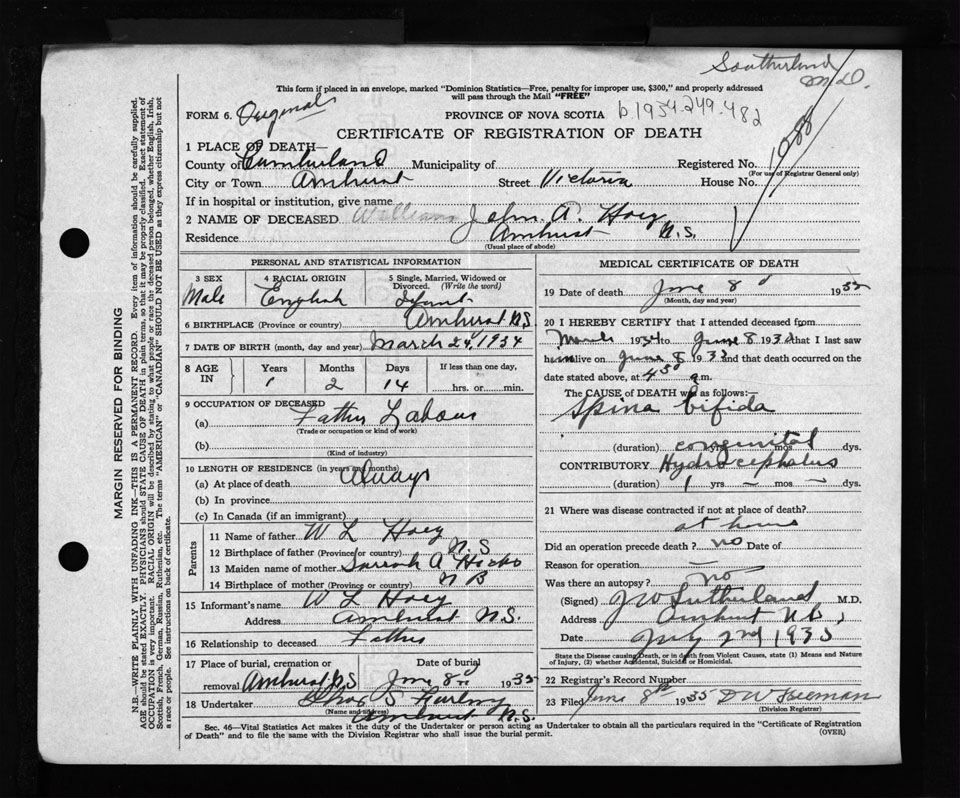 Southerland
M.D.
This form if posted in an envelope, marked "Dominion Statistics—Free, penalty for improper use, $300," and properly addressed
will pass through the Mail "FREE"
FORM 6. Original PROVINCE OF NOVA SCOTIA b.1934.249.482
CERTIFICATE OF REGISTRATION OF DEATH
1088
1 PLACE OF DEATH—
County of Cumberland Municipality of Registered No.
(For use of Registrar General only)
City or Town Amherst Street Victoria House No.
If in hospital or institution, give name
2 NAME OF DECEASED William John A. Hoey
Residence Amherst N.S.
(Usual place of abode)
PERSONAL AND STATISTICAL INFORMATION
3 SEX 4 RACIAL ORIGIN 5 Single, Married, Widowed or Divorced. (Write the word)
Male English Infant
6 BIRTHPLACE (Province or country) Amherst N.S.
7 DATE OF BIRTH (month, day and year) March 24, 1934
8 AGE IN Years Months Days If less than one day,
1 2 14 hrs. or min.
9 OCCUPATION OF DECEASED
(a) Father Labour
(Trade or occupation or kind of work)
(b)
(Kind of industry)
10 LENGTH OF RESIDENCE (in years and months)
(a) At place of death Always
(b) In province
(c) In Canada (if an immigrant)
Parents
11 Name of father W L Hoey
12 Birthplace of father (Province or country) N.S
13 Maiden name of mother Sarrah A Hicks
14 Birthplace of mother (Province or country) N B
15 Informant's name W L Hoey
Address Amherst N.S.
16 Relationship to deceased Father
17 Place of burial, cremation or Date of burial
removal Amherst NS June 8th 1935
18 Undertaker
(Name and address) Amherst N.S.
MEDICAL CERTIFICATE OF DEATH
19 Date of death June 8 1935
(Month, day and year)
20 I HEREBY CERTIFY that I attended deceased from
March 1934 to June 8 1935 that I last saw
him alive on June 8 1935 and that death occurred on
date stated above, at 4 30 a.m.
The CAUSE OF DEATH was as follows:
Spina bifida
(duration) congenital mos. dys.
CONTRIBUTORY Hydrocephalus
(duration) 1 yrs — mos — dys.
21 Where was disease contracted if not at place of death?
at home
Did an operation precede death? no Date of
Reason for operation —
Was there an autopsy? no
(Signed) J W Sutherland M.D.
Address Amherst N.S,
Date July 2nd 1935
State the Disease causing Death, or in death from Violent Causes, state (1) Means and Nature
of Injury, (2) whether Accidental, Suicidal or Homicidal.
22 Registrar's Record Number
23 Filed June 8th 1935 D W Freeman
(Division Registrar)
Sec. 46—Vital Statistics Act makes it the duty of the Undertaker or person acting as Undertaker to obtain all the particulars required in the "Certificate of Registration
of Death" and to file the same with the Division Registrar who shall issue the burial permit.
(OVER)
MARGIN RESERVED FOR BINDING
N.B.—WRITE PLAINLY WITH UNFADING INK—THIS IS A PERMANENT RECORD. Every item of information should be carefully supplied.
AGE should be stated EXACTLY. PHYSICIANS should STATE CAUSE OF DEATH in plain terms, so that it may be properly classified. Exact statement of
OCCUPATION is very important. RACIAL ORIGIN will be described by stating to what people or race the deceased person belonged, whether English, Irish,
Scottish, French, German, Russian, Ruthenian, etc. The terms "AMERICAN" or "CANADIAN" SHOULD NOT BE USED as they express citizenship but not
a race or people. See instructions on back of certificate.